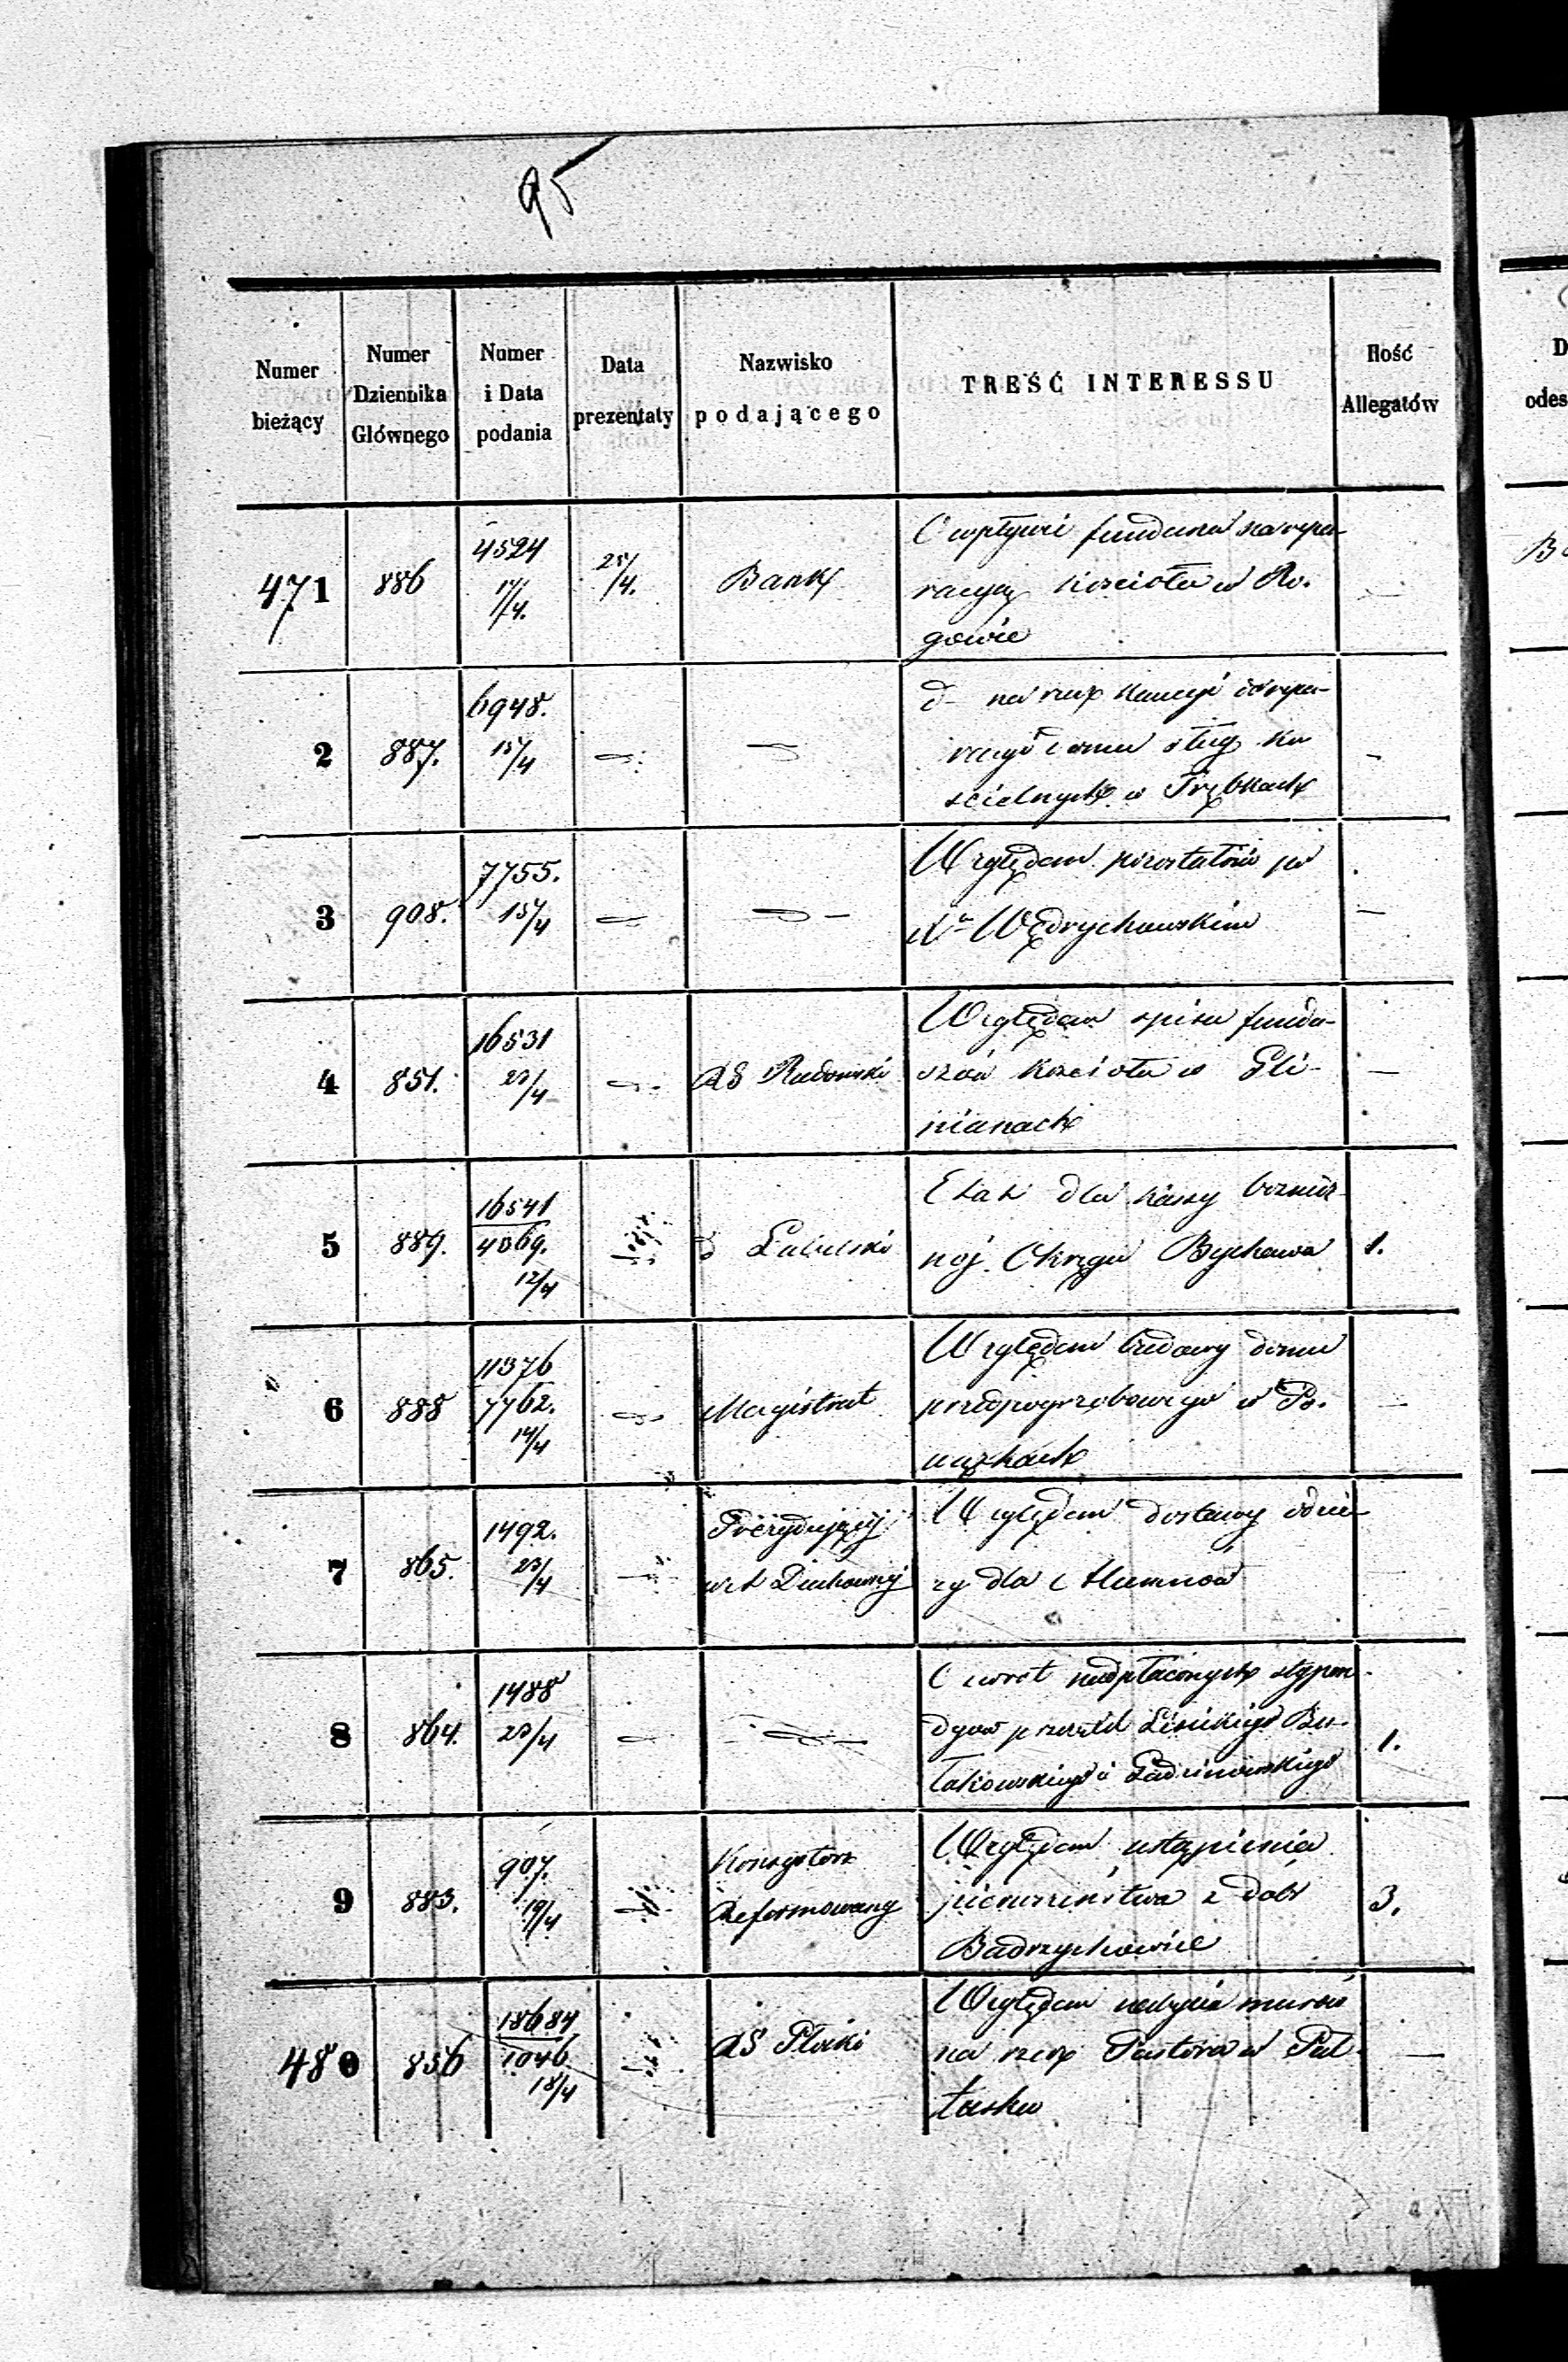 95
Numer bieżący
Numer Dziennika Głównego
Numer i Data podania
Data prezentaty
Nazwisko podającego
TREŚĆ INTERESSU
Ilość Allegatów
471 886 4524 17/4. 25/4. Bank
O wpływie fundusza na repa-
racyę kościoła w Ro-
gowie
2 887. 6948. 15/4
d- na rzecz kaucyi
sług ko
scielnych w Trębkach
3 908. 7755. 15/4
Względem pozostałości po
Xu Wędrychowskim
4 851. 16531 23/4 RG Radomski
Względem spisu fundu-
szów kościoła w Gli-
nianach
5 889. 16541 4069. 12/4 d Lubelski
Etat dla kassy bożnicz-
nej Okręgu Bychawa 1.
6 888 11376 7762. 14/4 Magistrat
Względem budowy domu
przedpogrzebowego w Po-
wązkach
7 865. 1492. 23/4 Prezydujący
w Duchownej
Względem dostawy odzie-
ży dla Alumnów
8 864. 1488 23/4
O zwrot nadpłaconych stypen-
dyów przez Lisickiego Bu-
łakowskiego i 1.
9 883. 907. 19/4 Konsystorz
Reformowany
Względem ustąpienia
pierwszeństwa z dóbr
Badrzychowice 3.
480 856 18684 1046 18/4 RG Płocki
Względem nabycia
na rzecz Pastora w Puł-
tusku